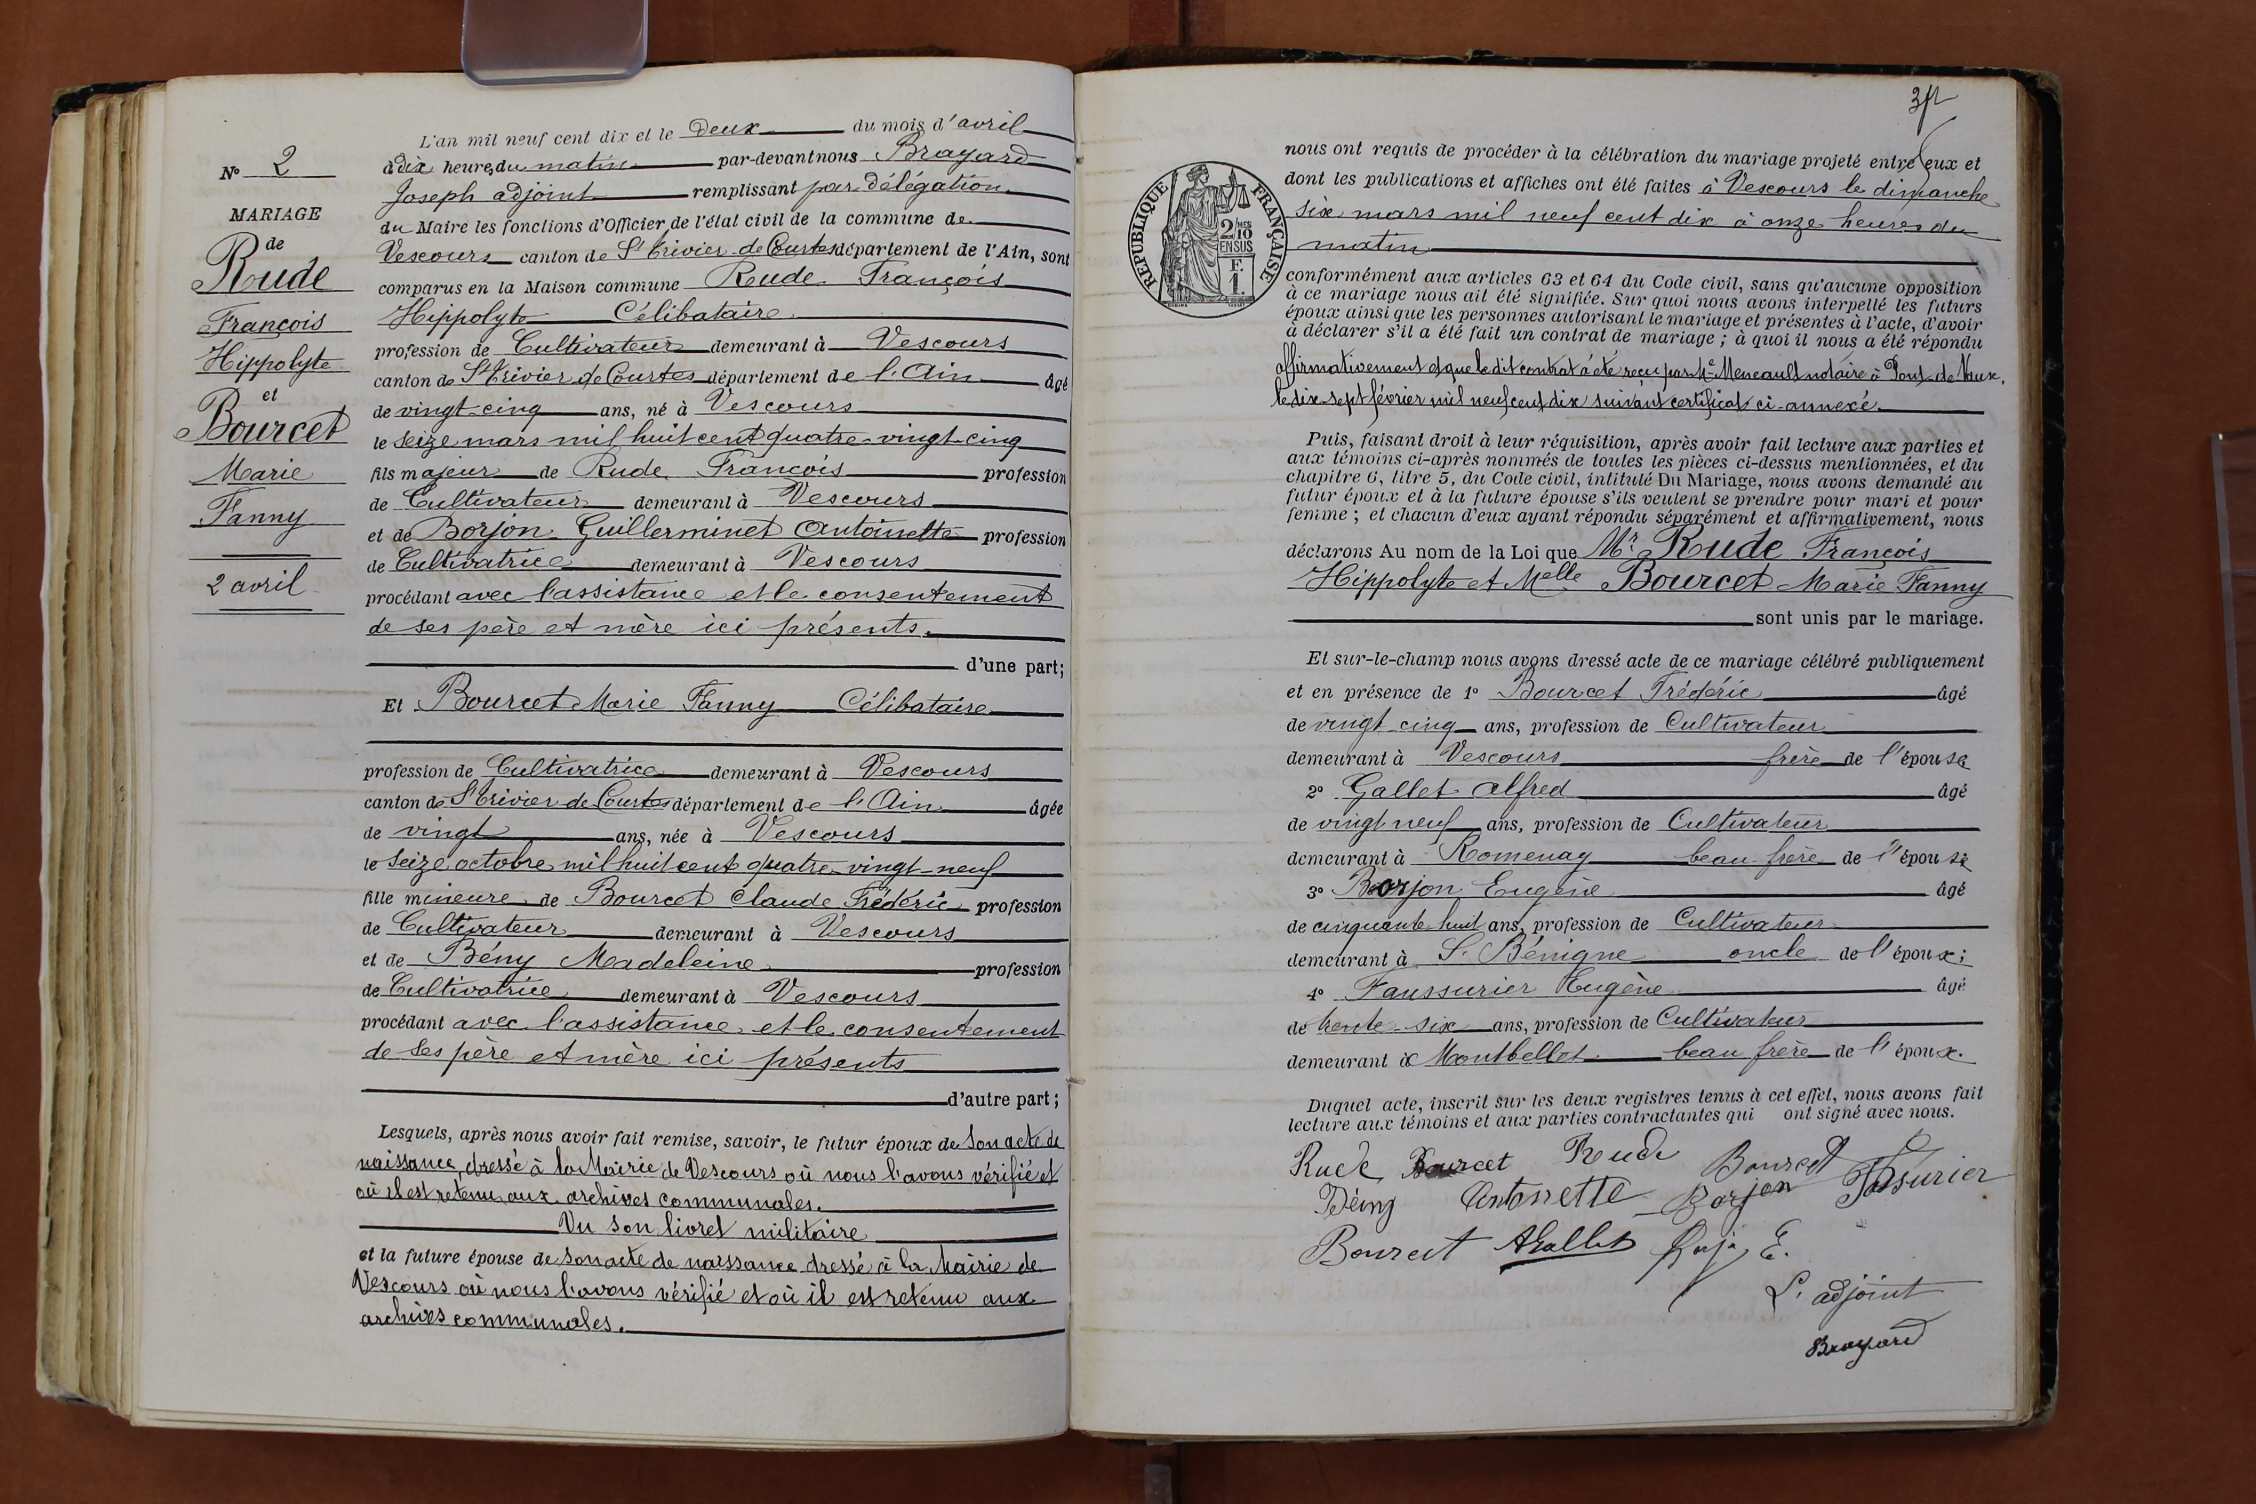 N° 2
MARIAGE
de
Rude
François
Hippolyte
et
Bourcet
Marie
Fanny
2 avril
L'an mil neuf cent dix et le deux du mois d'avril
à dix heures du matin par-devant nous Brayard
Joseph adjoint remplissant par délégation
du Maire les fonctions d'Officier de l'état civil de la commune de
Vescours canton de St Trivier de Courtes département de l'Ain, sont
comparus en la Maison commune Rude François
Hippolyte Célibataire
profession de Cultivateur demeurant à Vescours
canton de St Trivier de Courtes département de l'Ain âgé
de vingt cinq ans, né à Vescours
le seize mars mil huit cent quatre-vingt-cinq
fils majeur de Rude François profession
de Cultivateur demeurant à Vescours
et de Borjon Guillerminet Antoinette profession
de Cultivatrice demeurant à Vescours
procédant avec l'assistance et le consentement
de ses père et mère ici présents.
d'une part;
Et Bourcet Marie Fanny Célibataire
profession de Cultivatrice demeurant à Vescours
canton de St Trivier de Courtes département de l'Ain âgée
de vingt ans, née à Vescours
le seize octobre mil huit cent quatre-vingt-neuf
fille mineure de Bourcet Claude Frédéric profession
de Cultivateur demeurant à Vescours
et de Bény Madeleine profession
de Cultivatrice demeurant à Vescours
procédant avec l'assistance et le consentement
de ses père et mère ici présents
d'autre part;
Lesquels, après nous avoir fait remise, savoir, le futur époux de son acte de
naissance dressé à la Mairie de Vescours où nous l'avons vérifié et
où il est retenu aux archives communales.
Vu son livret militaire
et la future épouse de son acte de naissance dressé à la Mairie de
Vescours où nous l'avons vérifié et où il est retenu aux
archives communales.
RÉPUBLIQUE FRANÇAISE
2/10
EN SUS
F.
1.
nous ont requis de procéder à la célébration du mariage projeté entre eux et
dont les publications et affiches ont été faites à Vescours le dimanche
six mars mil neuf cent dix à onze heures du
matin
conformément aux articles 63 et 64 du Code civil, sans qu'aucune opposition
à ce mariage nous ait été signifiée. Sur quoi nous avons interpellé les futurs
époux ainsi que les personnes autorisant le mariage et présentes à l'acte, d'avoir
à déclarer s'il a été fait un contrat de mariage; à quoi il nous a été répondu
affirmativement et que le dit contrat a été reçu par Me Meneault notaire à Pont-de-Vaux,
le dix-sept février mil neuf cent dix suivant certificat ci-annexé.
Puis, faisant droit à leur réquisition, après avoir fait lecture aux parties et
aux témoins ci-après nommés de toutes les pièces ci-dessus mentionnées, et du
chapitre 6, titre 5, du Code civil, intitulé Du Mariage, nous avons demandé au
futur époux et à la future épouse s'ils veulent se prendre pour mari et pour
femme; et chacun d'eux ayant répondu séparément et affirmativement, nous
déclarons Au nom de la Loi que Mr Rude François
Hippolyte et Melle Bourcet Marie Fanny
sont unis par le mariage.
Et sur-le-champ nous avons dressé acte de ce mariage célébré publiquement
et en présence de 1° Bourcet Frédéric âgé
de vingt-cinq ans, profession de Cultivateur
demeurant à Vescours frère de l'épouse
2° Gallet Alfred âgé
de vingt neuf ans, profession de Cultivateur
demeurant à Romenay beau-frère de l'épouse
3° Borjon Eugène âgé
de cinquante huit ans, profession de Cultivateur
demeurant à St Bénigne oncle de l'époux;
4° Faussurier Eugène âgé
de trente-six ans, profession de Cultivateur
demeurant à Montbellet beau frère de l'époux.
Duquel acte, inscrit sur les deux registres tenus à cet effet, nous avons fait
lecture aux témoins et aux parties contractantes qui ont signé avec nous.
Rude Bourcet Rude Bourcet
Bény Antonette Borjon
Bourcet AGallet E.
L'adjoint
Brayard